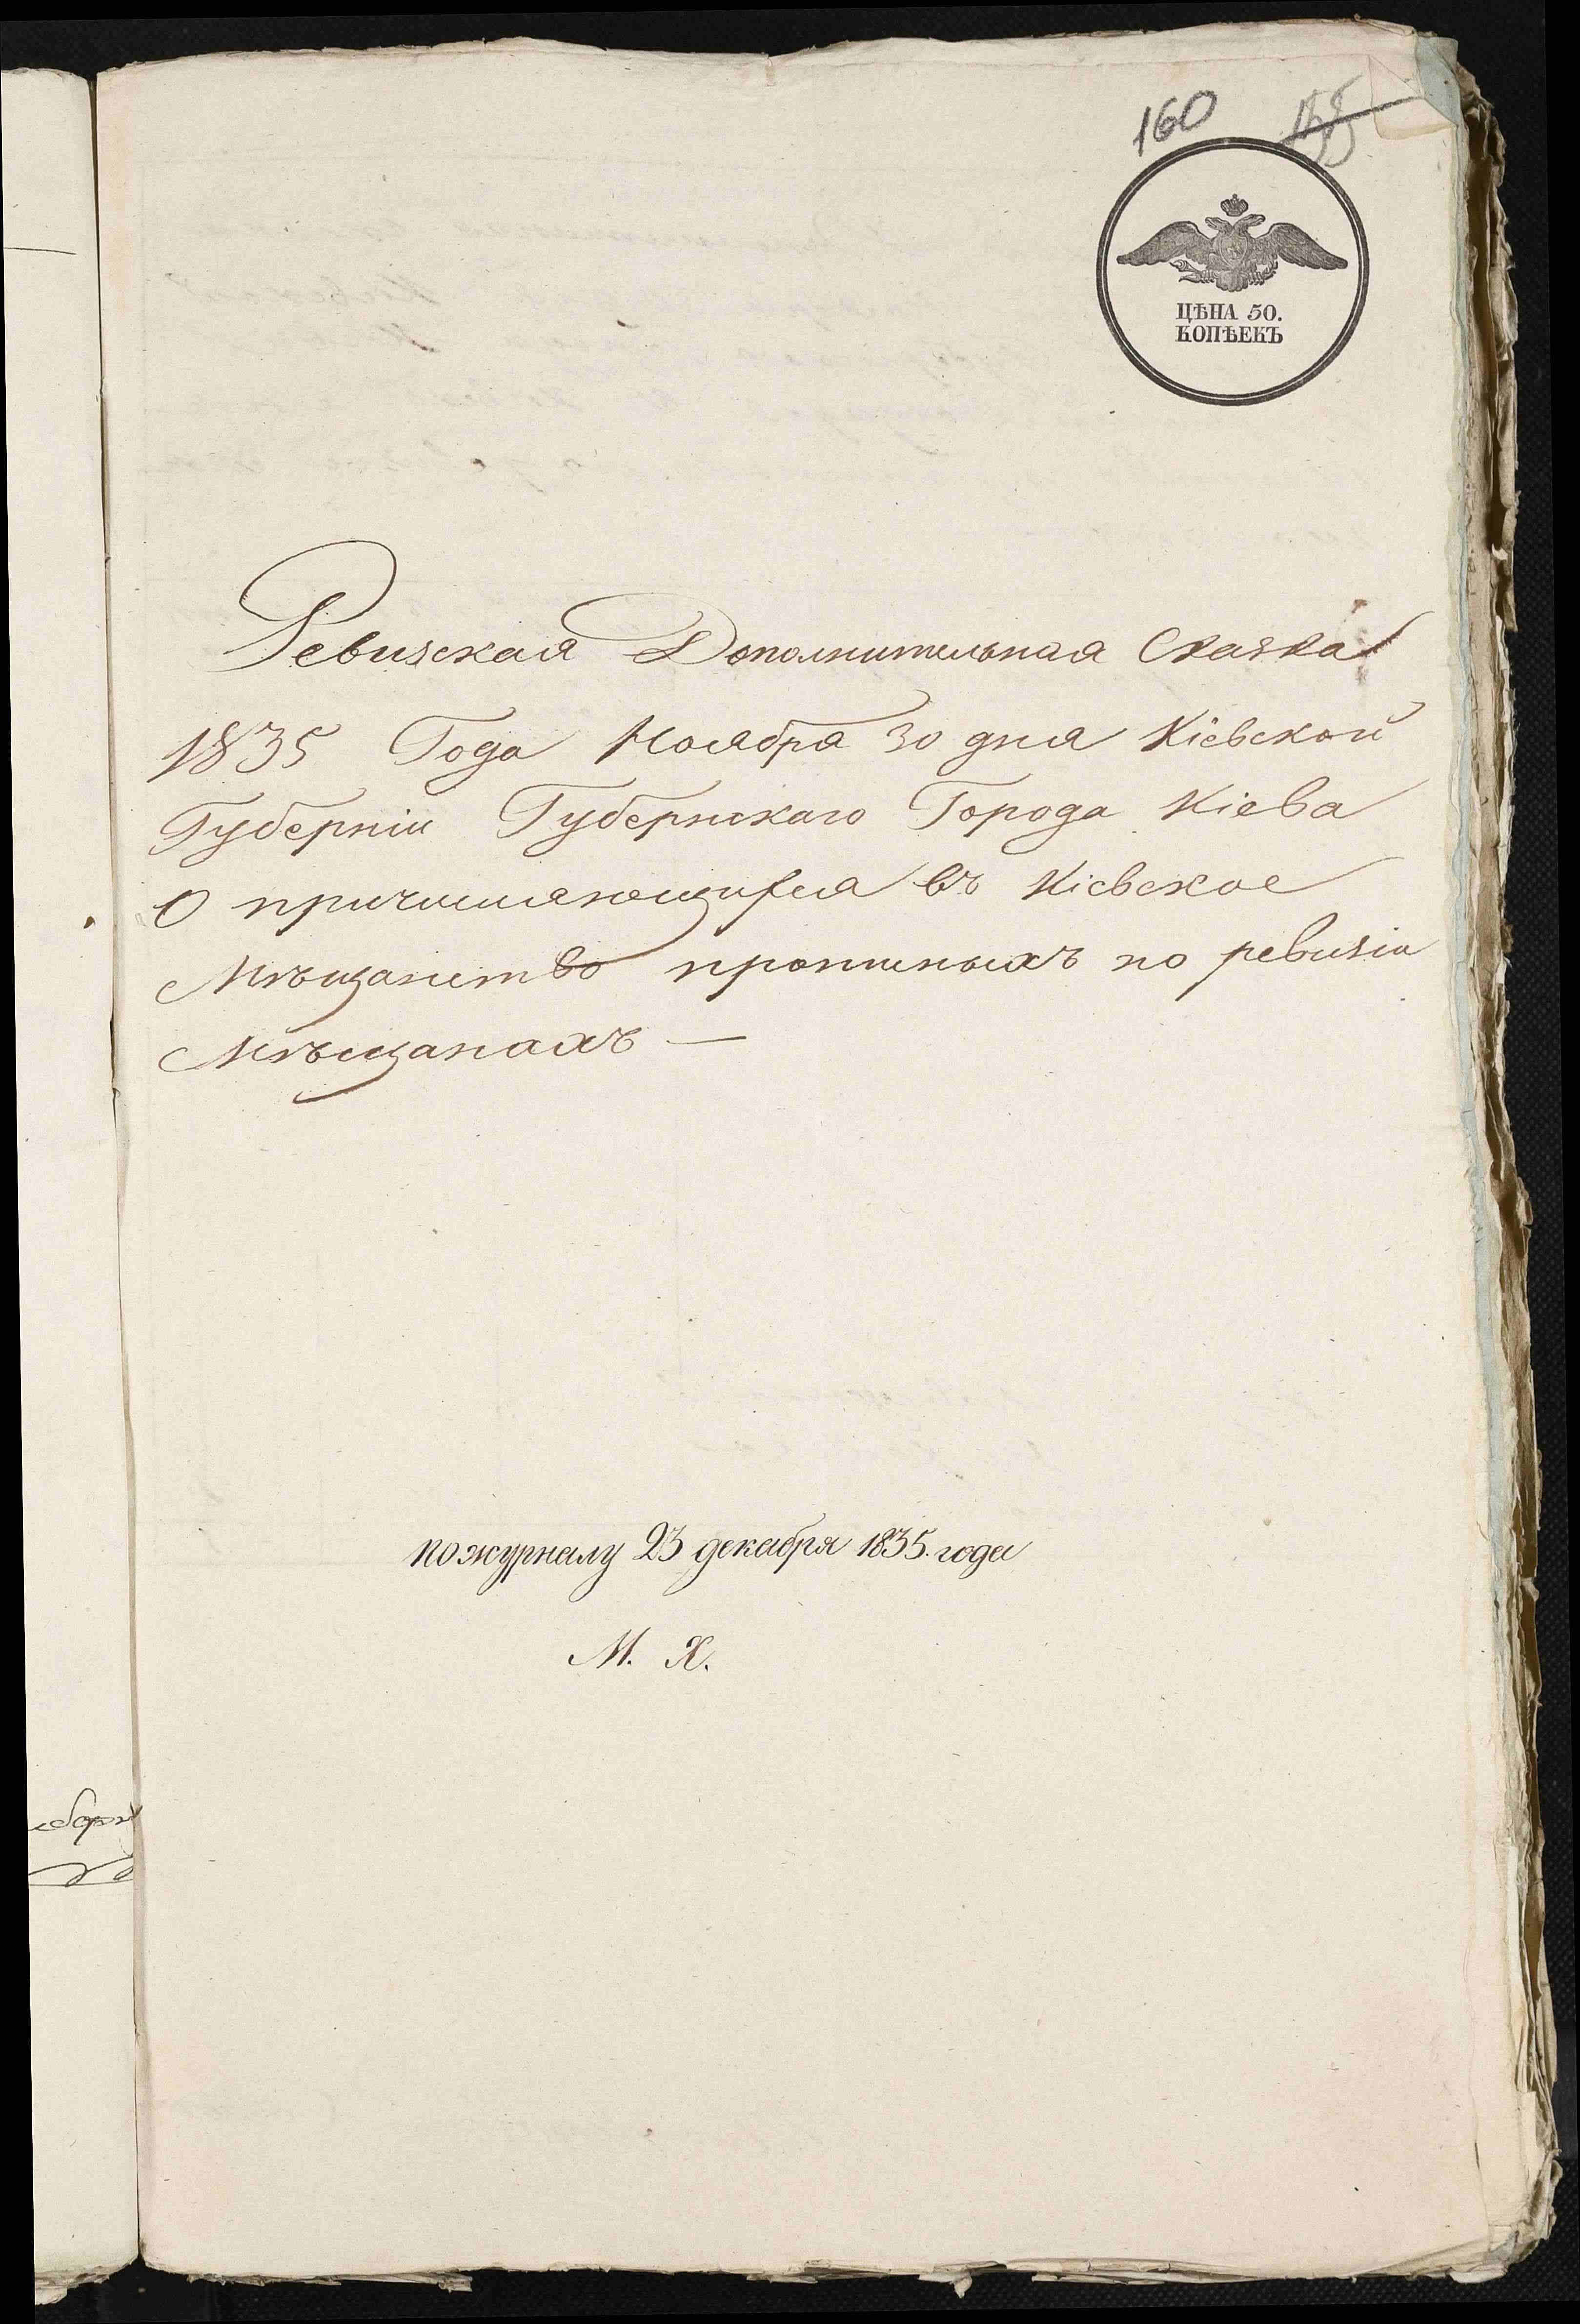 160 155
ЦѢНА 50.
КОПѢЕКЪ
Ревизская Дополнительная Сказка
1835 Года Ноября 30 дня Кіевской
Губерніи Губернскаго Города Кіева
О причисляющихся въ Кіевское
Мѣщанство прописныхъ по ревизіи
Мѣщанахъ —
по журналу 23 декабря 1835. года
М. Х.